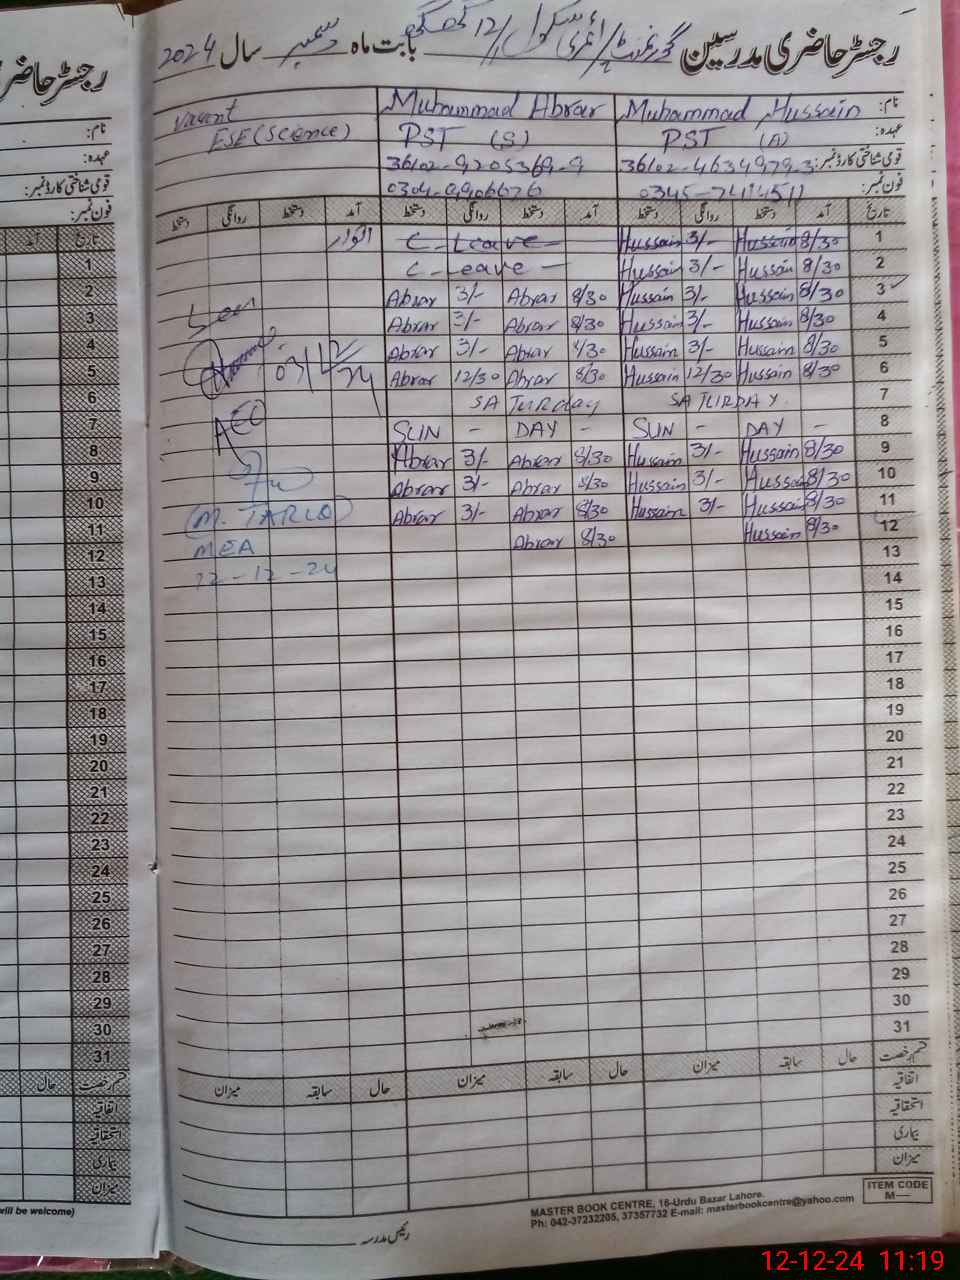 رجسٹر حاضری مدرسین گورنمنٹ پرائمری سکول 12/ بابت ماہ دسمبر سال 2024
نام: Muhammad Hussain Muhammad Abrar Vacant
عہدہ: PST (A) PST (S) ESE (Science)
قومی شناختی کارڈ نمبر: 36102-4634979-3 36102-9205369-9
فون نمبر:
تاریخ آمد دستخط روانگی دستخط آمد دستخط روانگی دستخط آمد دستخط روانگی دستخط
1 8/30 Hussain 3/- Hussain C-Leave اتوار
2 8/30 Hussain 3/- Hussain C-Leave
3 8/30 Hussain 3/- Hussain 8/30 Abrar 3/- Abrar
4 8/30 Hussain 3/- Hussain 8/30 Abrar 3/- Abrar
5 8/30 Hussain 3/- Hussain 8/30 Abrar 3/- Abrar
6 8/30 Hussain 12/30 Hussain 8/30 Abrar 12/30 Abrar
7 SATURDAY SATURday
8 SUN - DAY - SUN - DAY -
9 8/30 Hussain 3/- Hussain 8/30 Abrar 3/- Abrar
10 8/30 Hussain 3/- Hussain 8/30 Abrar 3/- Abrar
11 8/30 Hussain 3/- Hussain 8/30 Abrar 3/- Abrar
12 8/30 Hussain 8/30 Abrar
13
14
15
16
17
18
19
20
21
22
23
24
25
26
27
28
29
30
31
Seen
03/12/24
AEO
(M. TARIQ)
MEA
12-12-24
قسم رخصت حال سابقہ میزان حال سابقہ میزان حال سابقہ میزان
اتفاقیہ
استحقاقیہ
بیماری
میزان
ITEM CODE
M—
MASTER BOOK CENTRE, 16-Urdu Bazar Lahore.
Ph: 042-37232205, 37357732 E-mail: masterbookcentre@yahoo.com
رئیس مدرسہ
رجسٹر حاضر
نام:
عہدہ:
قومی شناختی کارڈ نمبر:
فون نمبر:
تاریخ آمد
1
2
3
4
5
6
7
8
9
10
11
12
13
14
15
16
17
18
19
20
21
22
23
24
25
26
27
28
29
30
31
قسم رخصت حال
اتفاقیہ
استحقاقیہ
بیماری
میزان
will be welcome)
12-12-24 11:19